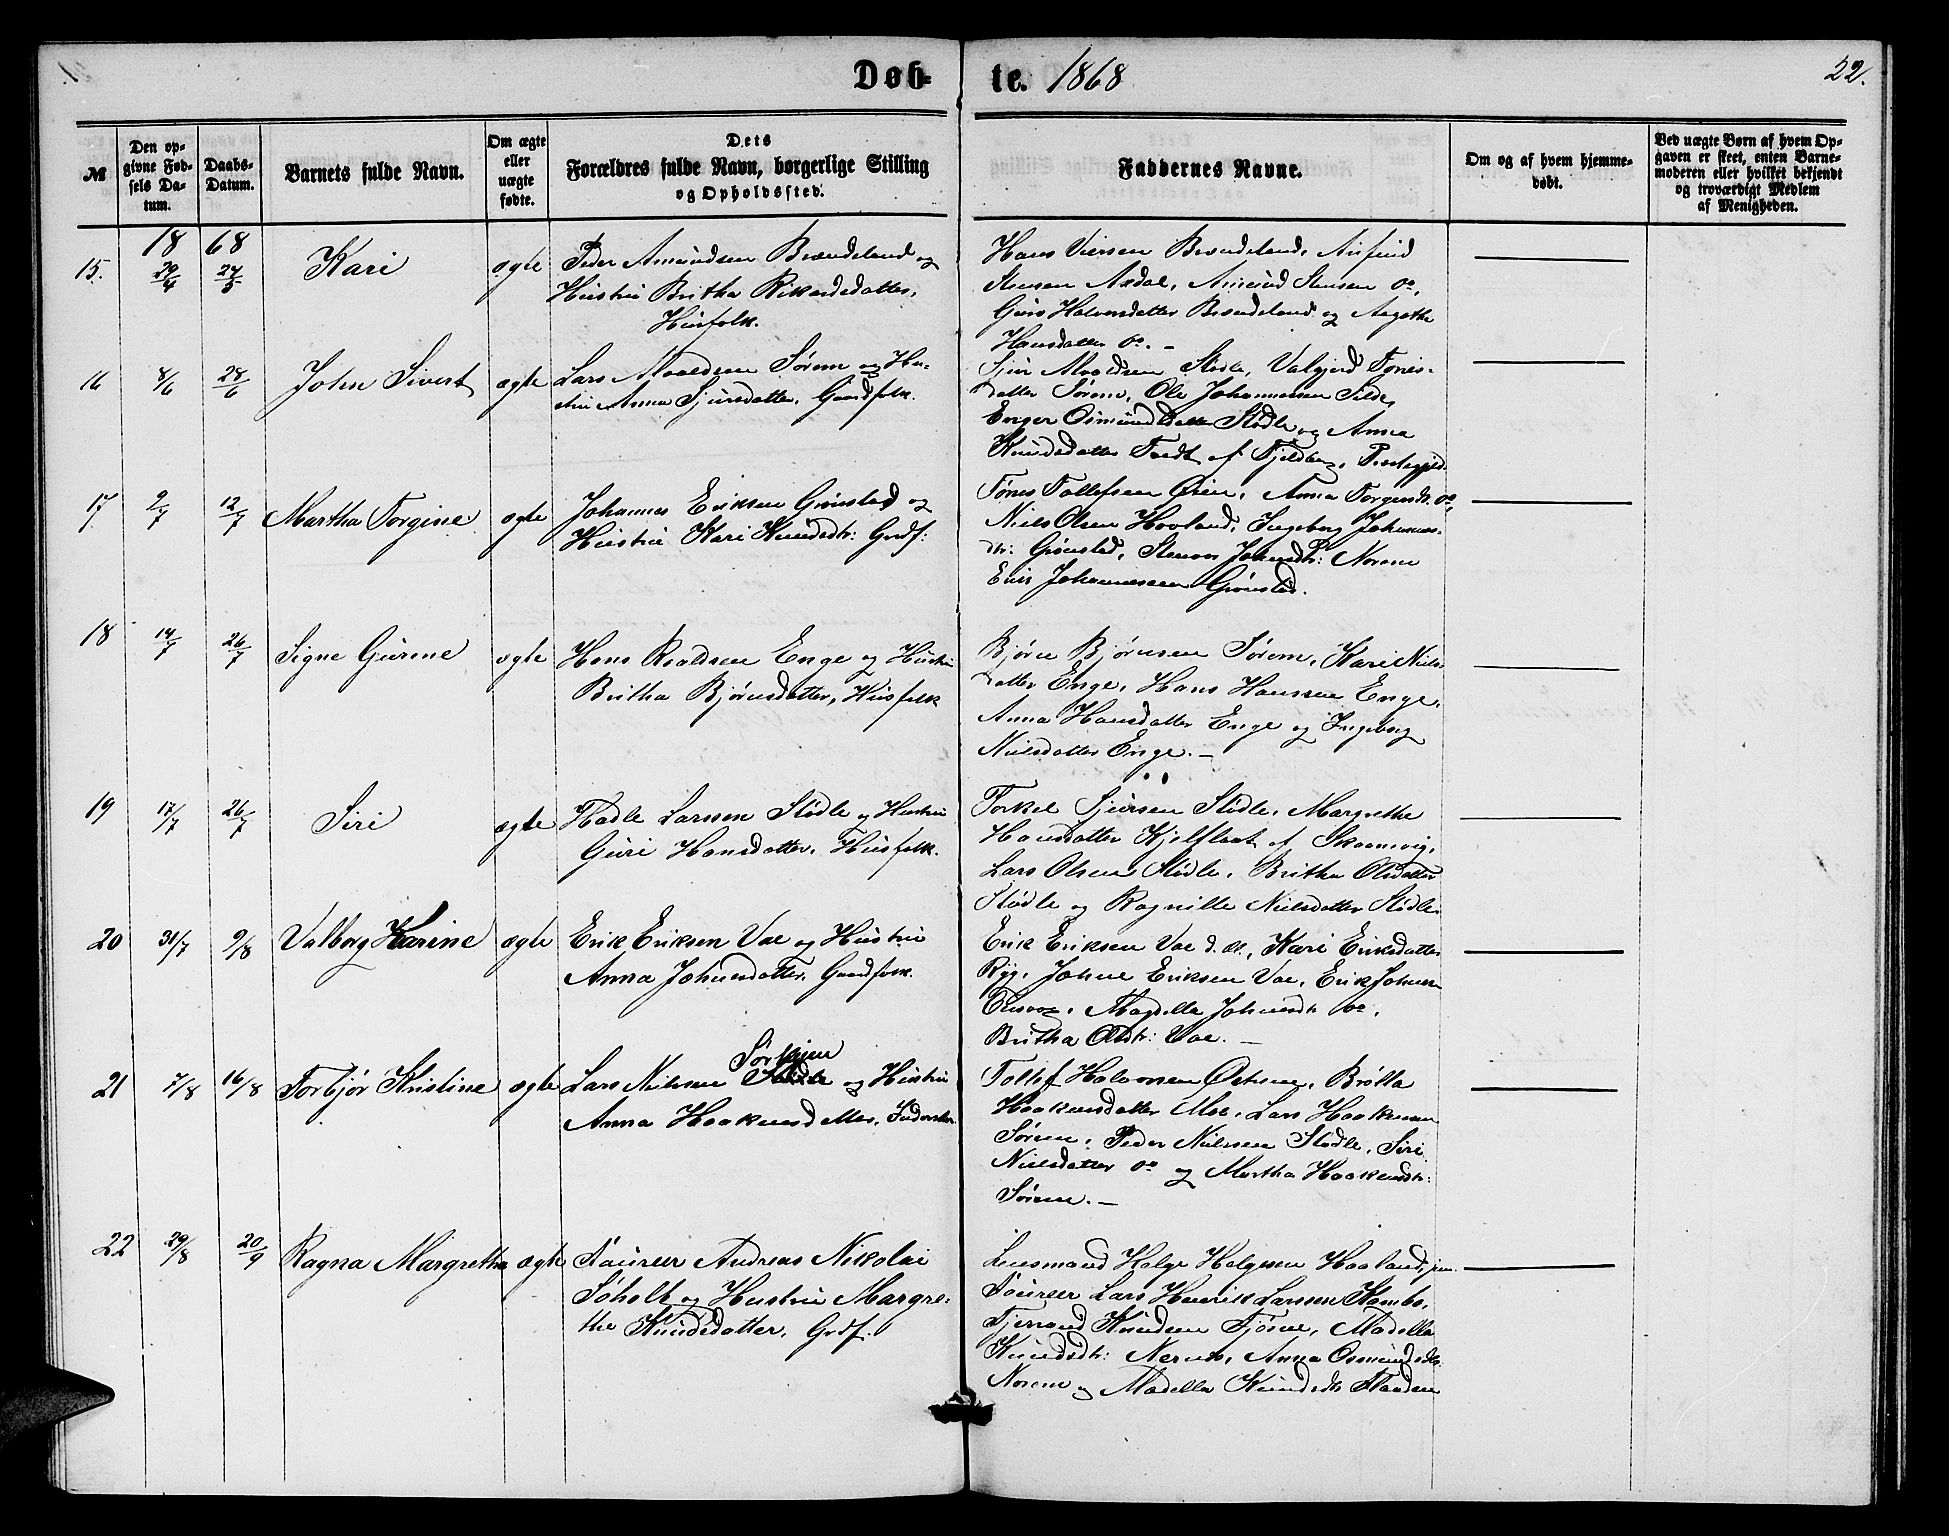 Døb-
te. 1868
22.
№
Den op-
givne Fød-
sels Da-
tum.
Daabs-
Datum.
Barnets fulde Navn.
Om ægte
eller
uægte
fødte.
Dets
Forældres fulde Navn, borgerlige Stilling
og Opholdssted.
Faddernes Navne.
Om og af hvem hjemme-
døbt.
Ved uægte Børn af hvem Op-
gaven er skeet, enten Barne-
moderen eller hvilket bekjendt
og troværdigt Medlem
af Menigheden.
1868
15. 29/4 24/5 Kari ægte Peder Amundsen Brændeland og
Hustru Britha Rikardsdatter,
Husfolk.
Hans Brændeland,
Stensen Axdal, Amund Stensen do,
Guro Halvorsdatter Brændeland og Aagothe
Hansdatter do. –
16 8/6 28/6 John Sivert ægte Lars Sørem og Hu-
stru Anna Sjursdatter, Gaardfolk.
Stødle, Valgjerd Tønnes-
datter Sørem, Ole Johannessen Silde,
Osmundsdatter Stødle og Anna
Knudsdatter af Fjeldberg Præstegjeld
17 2/7 12/7 Martha Torgine ægte Johannes Eriksen Grønstad og
Hustru Kari Knudsdtr: Grdf:
Tønes Tollefsen Øien, Anna Torgersdtr. do,
Niels Olsen Hovland, Ingeborg Johannes-
dtr: Grønstad, Johnsdtr: Norem
Erik Johannessen Grønstad.
18 14/7 26/7 Signe Gurine ægte Hans Roaldsen Enge og Hustru
Britha Bjørnsdatter, Husfolk
Bjørn Bjørnsen Sørem, Kari Niels-
datter Enge, Hans Hanssen Enge,
Anna Hansdatter Enge og Ingeborg
Nielsdatter Enge. –
19 17/7 26/7 Siri ægte Hadle Larssen Stødle og Hustru
Guri Hansdatter, Husfolk.
Torkel Sjursen Stødle, Margrethe
Hansdatter Kjelflaat af Skaanevig,
Lars Olsen Stødle, Britha Olsdatter
Stødle og Ragnille Nielsdatter Stødle
20 31/7 9/8 Valborg Karine ægte Erik Eriksen Vae og Hustru
Anna Johnsdatter, Gaardfolk.
Erik Eriksen Vae d. æ., Kari Eriksdatter
Ryg, Johne Eriksen Vae, Erik Johnsen
Magdella Johnsdtr do,
Britha Olsdtr: Vae. –
21 7/8 16/8 Torbjør Kristine ægte Lars Nielsen Sørheim og Hustru
Anna Haakensdatter, Inderster.
Tollef Halvorsen Østrem, Brølla
Haakensdatter Moe, Lars Haakensen
Sørem, Peder Nielsen Stødle, Siri
Nielsdatter do og Martha Haakensdtr:
Sørem. –
22 29/8 20/9 Ragna Margretha ægte Andreas Nikolai
Søholt og Hustru Margre-
the Knudsdatter, Grdf.
Lensmand Helge Helgesen Haaland jun.
Lars Henrik Larssen Stambs,
Tjerrand Knudsen Fjøsne, Madella
Knudsdtr: Anna Osmundsdtr
Norem og Madella Knudsdtr